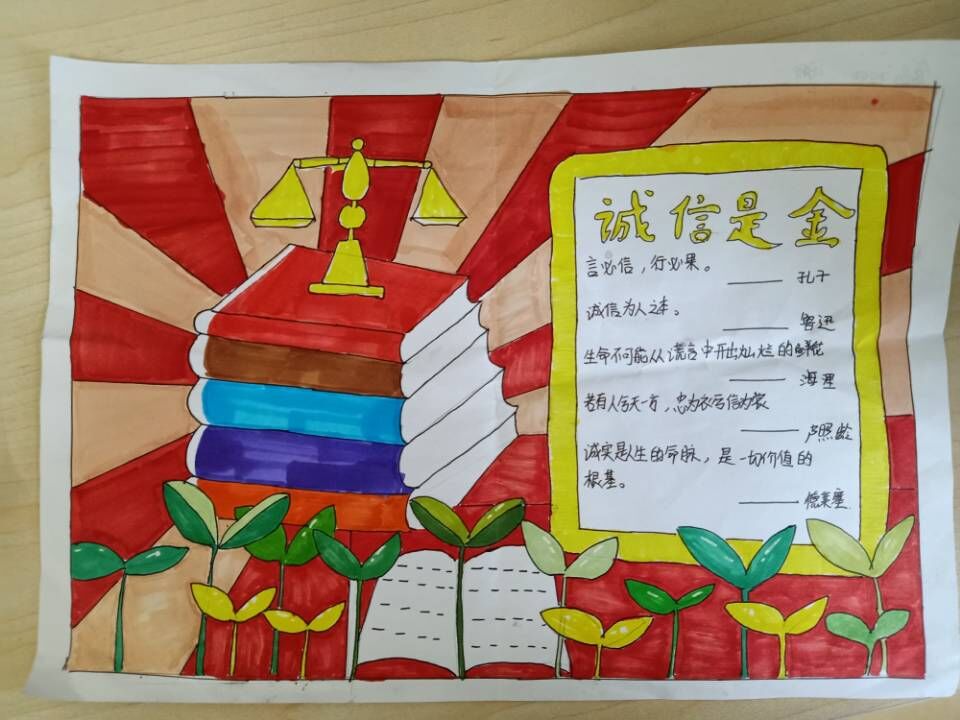 诚信是金
言必信，行必果。
—— 孔子
诚信为人之本。
—— 鲁迅
生命不可能从谎言中开出灿烂的鲜花
—— 海涅
若有人兮天一方，忠为衣兮信为裳
—— 卢照龄
诚实是人生的命脉，是一切价值的
根基。
—— 德莱塞